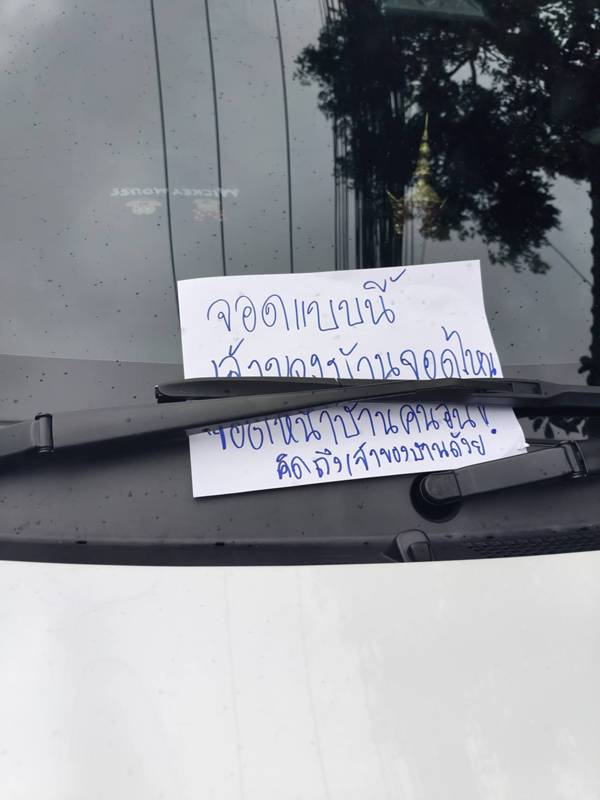 MICKEY MOUSE
จอดแบบนี้
เจ้าของบ้านจอดไหน
จอดหน้าบ้านคนอื่น
คิดถึงเจ้าของบ้านด้วย